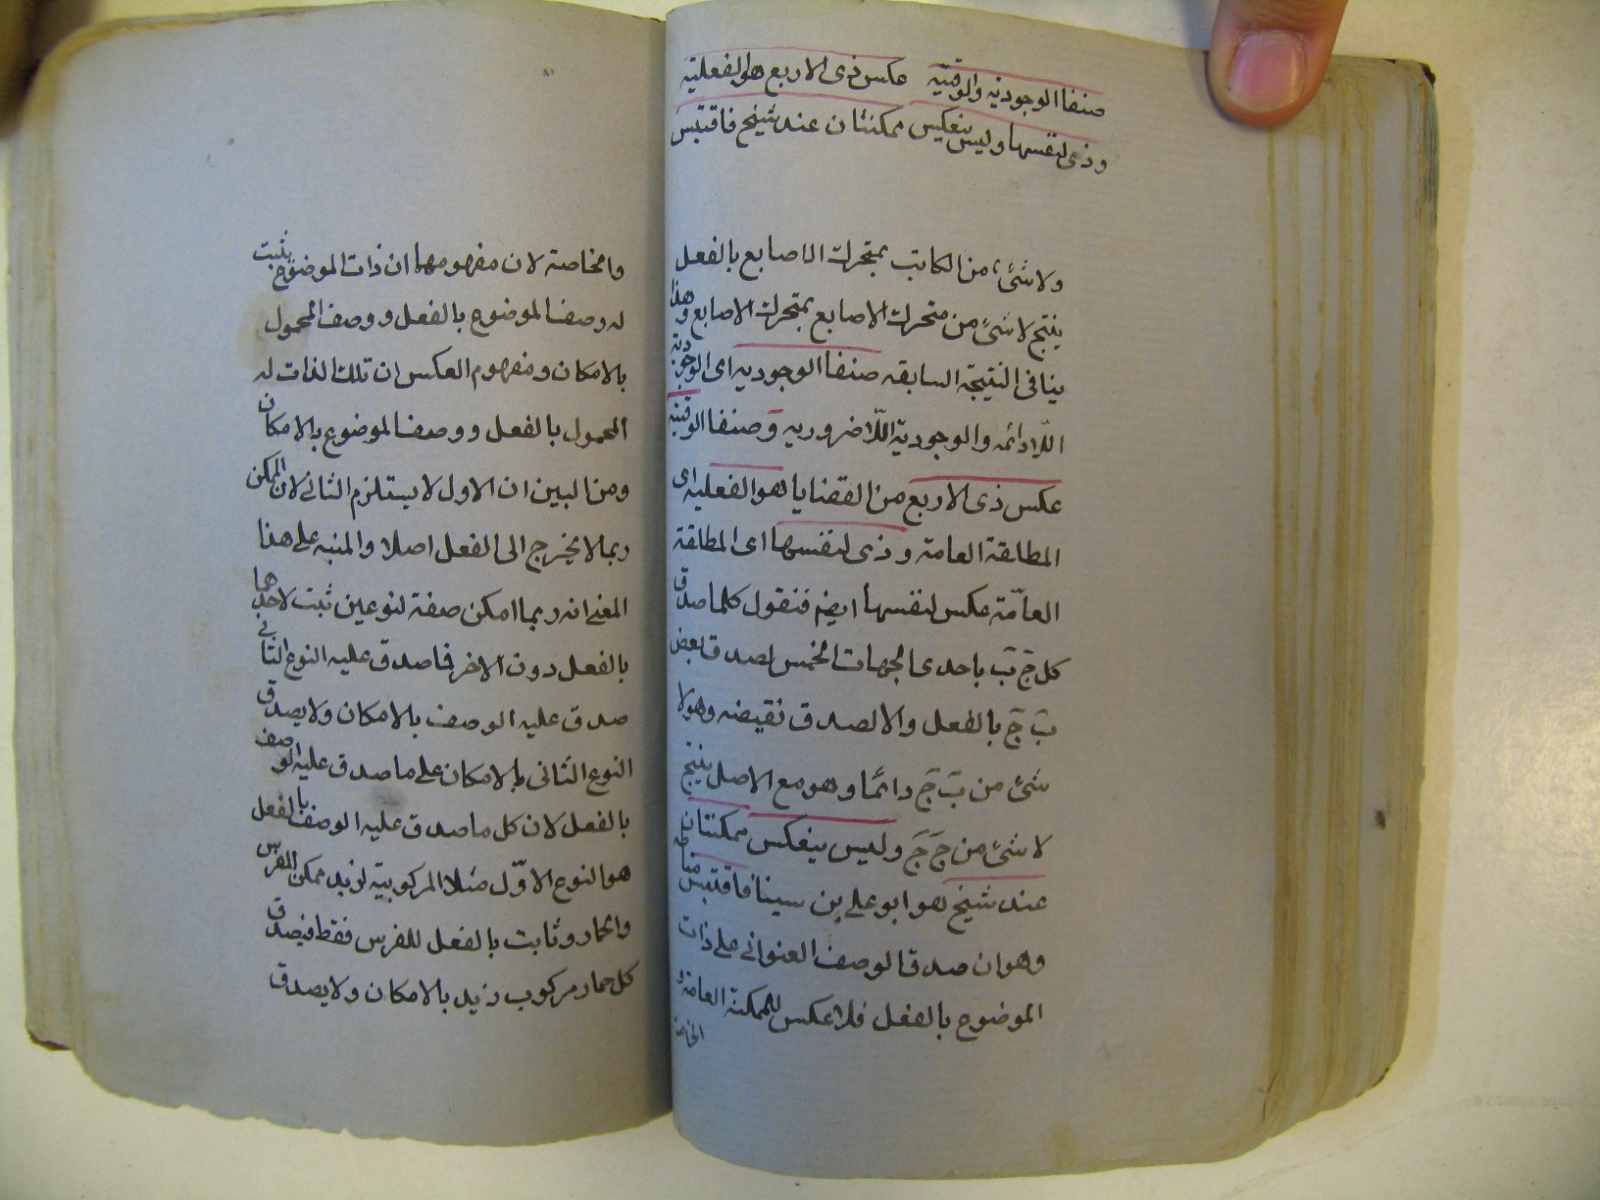 صنفا الوجودية والوقتية عكس ذى الاربع هو الفعلية
وذى لنفسها وليس ينعكس ممكنتان عند شيخ فاقتبس
ولا شئ من الكاتب بمتحرك الاصابع بالفعل
ينتج لا شئ من متحرك الاصابع بمتحرك الاصابع وهذا
ينافى النتيجة السابقه صنفا الوجوديه اى الوجودية
اللادائمه والوجودية اللاضروريه وصنفا الوقتية
عكس ذى الاربع من القضايا هو الفعليه اى
المطلقة العامة وذى لنفسها اى المطلقة
العامّة عكس لنفسها ايضم فنقول كلما صدق
كل ج ب باحدى الجهات الخمس لصدق بعض
ب ج بالفعل والا لصدق نقيضه وهو لا
شئ من ب ج دائما وهو مع الاصل ينتج
لا شئ من ج ج وليس ينعكس ممكنتان
عند شيخ هو ابو على بن سينا فاقتبس
وهو ان صدق الوصف العنوانى على ذات
الموضوع بالفعل فلا عكس للممكنة العامة و
الخاصة
والخاصة لان مفهومهما ان ذات الموضوع يثبت
له وصف الموضوع بالفعل ووصف المحمول
بالامكان ومفهوم العكس ان تلك الذات له
المحمول بالفعل ووصف الموضوع بالامكان
ومن البين ان الاول لا يستلزم الثانى لان الممكن
ربما لا يخرج الى الفعل اصلا والمنبه على هذا
المعنى انه ربما امكن صفة لنوعين ثبت لاحدهما
بالفعل دون الاخر فما صدق عليه النوع الثانى
صدق عليه الوصف بالامكان ولا يصدق
النوع الثانى بالامكان على ما صدق عليه الوصف
بالفعل لان كل ما صدق عليه الوصف بالفعل
هو النوع الاوّل مثلا المركوبية لزيد ممكن للفرس
والحمار وثابت بالفعل للفرس فقط فيصدق
كل حمار مركوب زيد بالامكان ولا يصدق